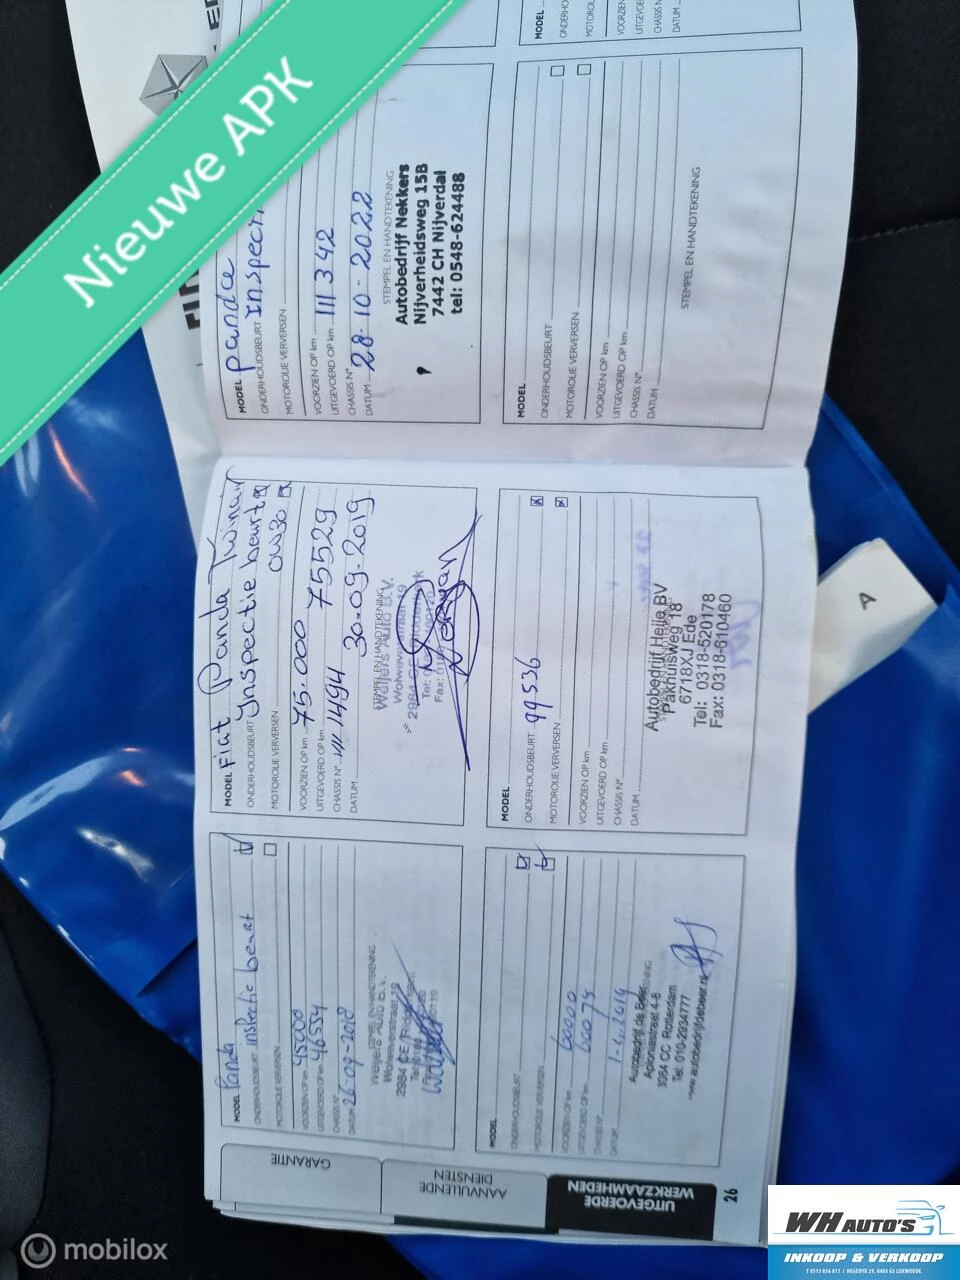 Nieuwe APK
MODEL Panda
ONDERHOUDSBEURT inspectie beurt
MOTOROLIE VERVERSEN
VOORZIEN OP km 45000
UITGEVOERD OP km 46554
CHASSIS N°
DATUM 26-09-2018
STEMPEL EN HANDTEKENING
Weijers Auto B.V.
MODEL
ONDERHOUDSBEURT
MOTOROLIE VERVERSEN
VOORZIEN OP km 60000
UITGEVOERD OP km
CHASSIS N°
DATUM 1-4-2019
Autobedrijf de Beer
Aploniastraat 4-6
3084 CC Rotterdam
Tel. 010-2934777
www.autobedrijfdebeer.nl
MODEL Fiat Panda Twinair
ONDERHOUDSBEURT Inspectie beurt
MOTOROLIE VERVERSEN 0W30
VOORZIEN OP km 75.000
UITGEVOERD OP km 75529
CHASSIS N°
DATUM 30-09-2019
STEMPEL EN HANDTEKENING
Weijers Auto B.V.
MODEL
ONDERHOUDSBEURT 99536
MOTOROLIE VERVERSEN
VOORZIEN OP km
UITGEVOERD OP km
CHASSIS N°
DATUM
Autobedrijf Heije BV
Pakhuisweg 18
6718XJ Ede
Tel: 0318-520178
Fax: 0318-610460
MODEL Panda
ONDERHOUDSBEURT Inspecti
MOTOROLIE VERVERSEN
VOORZIEN OP km
UITGEVOERD OP km 111342
CHASSIS N°
DATUM 28-10-2022
STEMPEL EN HANDTEKENING
Autobedrijf Nekkers
Nijverheidsweg 15B
7442 CH Nijverdal
tel: 0548-624488
MODEL
ONDERHOUDSBEURT
MOTOROLIE VERVERSEN
VOORZIEN OP km
UITGEVOERD OP km
CHASSIS N°
DATUM
STEMPEL EN HANDTEKENING
MODEL
CHASSIS N
DATUM
GARANTIE
AANVULLENDE
DIENSTEN
UITGEVOERDE
WERKZAAMHEDEN
26
A
mobilox
WH AUTO'S
INKOOP & VERKOOP
T 0513 856 811 | HEGEDYK 29, 8405 GS LUXWOUDE